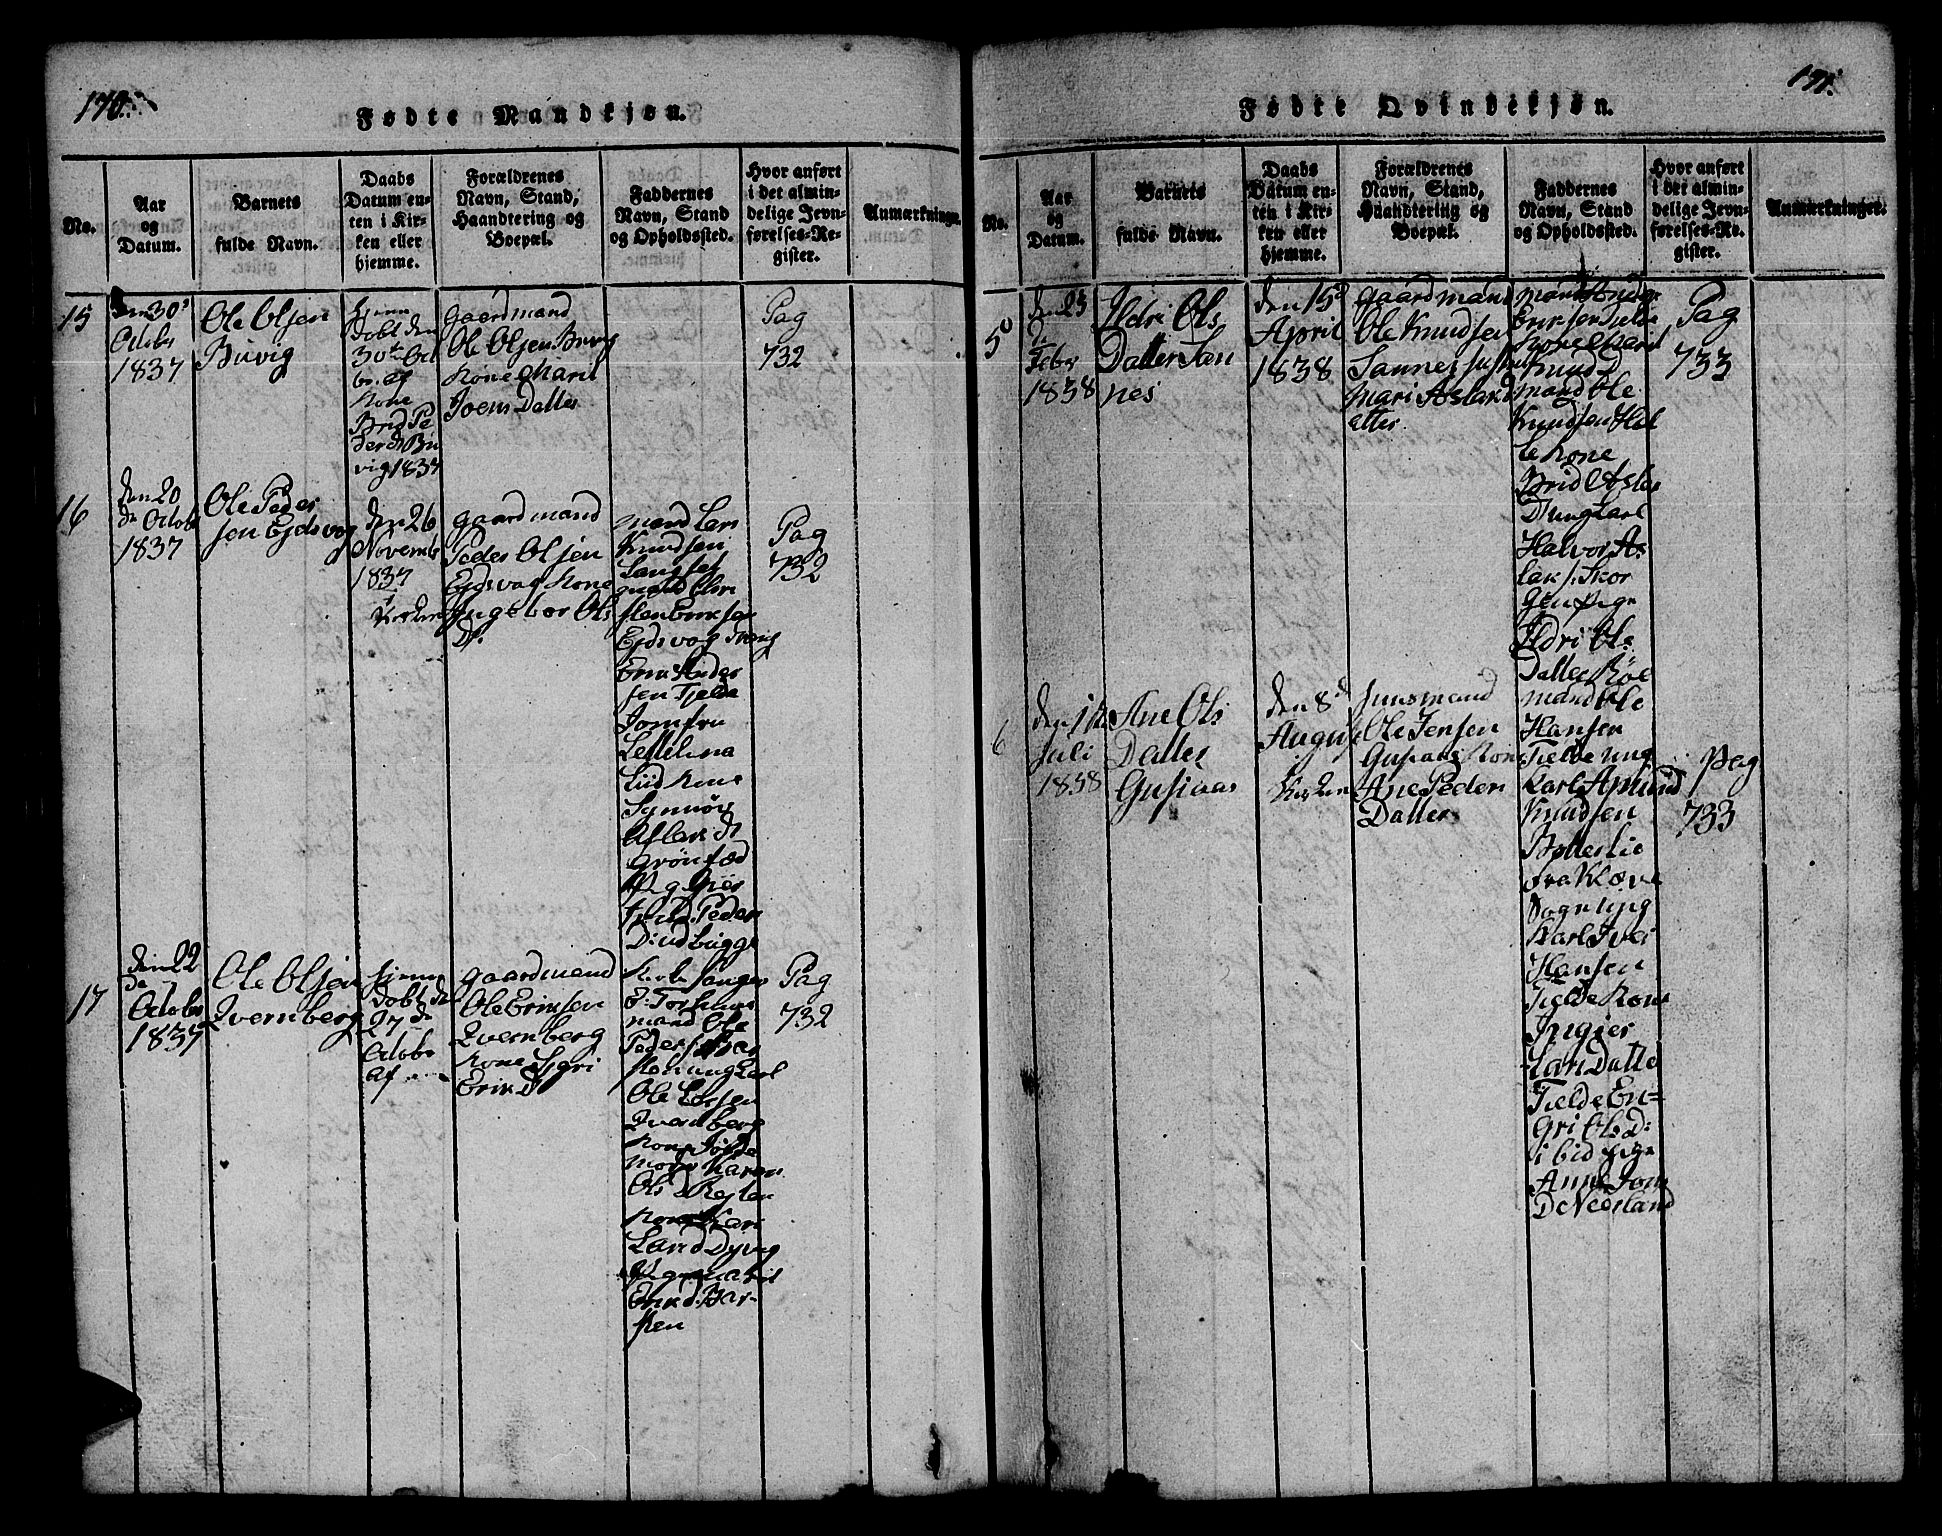 170.
Fødte Mandkjøn.
No.
Aar
og
Datum.
Barnets
fulde Navn.
Daabs
Datum en-
ten i Kir-
ken eller
hjemme.
Forældrenes
Navn, Stand,
Haandtering og
Boepæl.
Faddernes
Navn, Stand
og Opholdssted.
Hvor anført
i det almin-
delige Jevn-
førelses-Re-
gister.
Anmærkninger.
15
den 30
Octobr
1837
Ole Olsen
Buvig
hjem
Døbt den
30te Oct
br. af
Kone
Brid Pe
der D Bu
vig 1837
gaardmand
Ole Olsen Buvig
Kone Mari
Joens Datter
Pag
732
16
den 20
de Octob
1837
Ole Peder
sen Ejdsvog
den 26
Novemb
1837
Kirken
gaardmand
Peder Olsen
Ejdsvog Kone
Ingebor Ols
D.
mand Lars
Knudsen
Langset
mand Chri
sten Eriksen
Ejdsvog
Erik Ander
sen Tjelde
Jomfru
Lettelina
Lüd Kone
Synnøv
Aslak D
Grönfæd
Peder
D: udbügge
Pag
732
17
den 22
de
Octobr
1837
Ole Olsen
Qvernberg
hjem
Døbt d
27 d
Octobr
af
gaardmand
Ole Eriksen
Qvernberg
Kone Sigri
Erik D
mand Ole
Peders
ung Karl
Ole Larsen
Qvernberg
Kone
Karen
Ols D
Kone Kari
Lars D Dyvig
Erik D: Har-
sten
Pag
732
171.
Fødte Qvindekjøn.
No.
Aar
og
Datum.
Barnets
fulde Navn.
Daabs
Datum en-
ten i Kir-
ken eller
hjemme.
Forældrenes
Navn, Stand,
Haandtering og
Boepæl.
Faddernes
Navn, Stand
og Opholdssted.
Hvor anført
i det almin-
delige Jevn-
førelses-Re-
gister.
Anmærkninger.
5
den 23
d.
Febr
1838
Ildri Ols
Datter San
nes
den 15d
April
1838
gaardmand
Ole Knudsen
Sannes
Mari Aslak D
atter
mand
Eriksen Tjelde
Kone Mari
Knud D
mand Ole
Knudsen Hol
te Kone
Brid Aslak
D ung Karl
Halvor As
lak s. Skor
gen Pige
Ildri Ols
Datter Röe
Pag
733
6
den 1
Juli
1838
Ane Ols
Datter
Gusiaas
den 8d
August
Kirken
Huusmand
Ole Jensen
Gusiaas Kone
Ane Peders
Datter
mand Ole
Hansen
Tjelde ung
Karl Amund
Knudsen
Bölleslie
fra Kløve
Sogn ung
Karl Iver
Hansen
Tjelde Kone
Ingier
Lars Datte
Tjelde En=
gri Ols D:
ibid Pige
Anne Jons
D Neerland
Pag
733